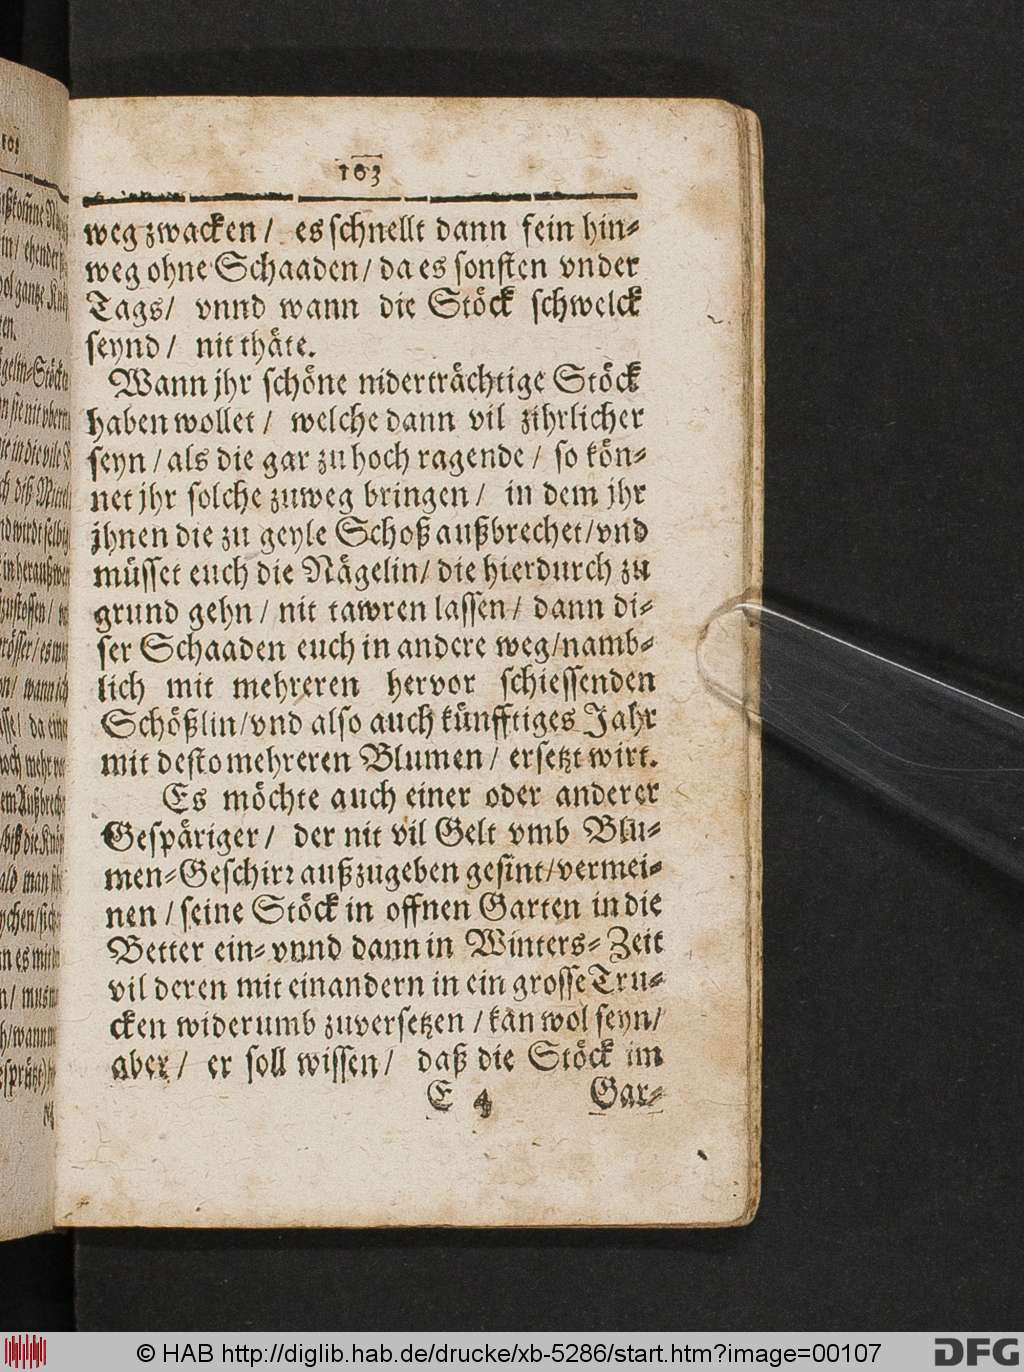 103
weg zwacken / es schnellt dann fein hin-
weg ohne Schaaden / da es sonsten vnder
Tags / vnnd wann die Stöck schwelck
seynd / nit thäte.
Wann jhr schöne niderträchtige Stöck
haben wollet / welche dann vil zihrlicher
seyn / als die gar zu hoch ragende / so kön-
net jhr solche zuweg bringen / in dem jhr
jhnen die zu geyle Schoß außbrechet / vnd
müsset euch die Nägelin / die hierdurch zu
grund gehn / nit tawren lassen / dann di-
ser Schaaden euch in andere weg / namb-
lich mit mehreren hervor schiessenden
Schößlin / vnd also auch künfftiges Jahr
mit desto mehreren Blumen / ersetzt wirt.
Es möchte auch einer oder anderer
Gespäriger / der nit vil Gelt vmb Blu-
men-Geschirr außzugeben gesint / vermei-
nen / seine Stöck in offnen Garten in die
Better ein- vnnd dann in Winters-Zeit
vil deren mit einandern in ein grosse Tru-
cken widerumb zuversetzen / kan wol seyn /
aber / er soll wissen / daß die Stöck im
E 4 Gar-
© HAB http://diglib.hab.de/drucke/xb-5286/start.htm?image=00107
DFG